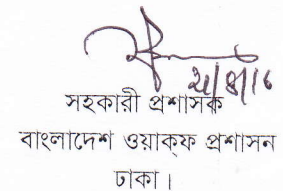 সহকারী প্রশাসক
বাংলাদেশ ওয়াক্ফ প্রশাসন
ঢাকা।